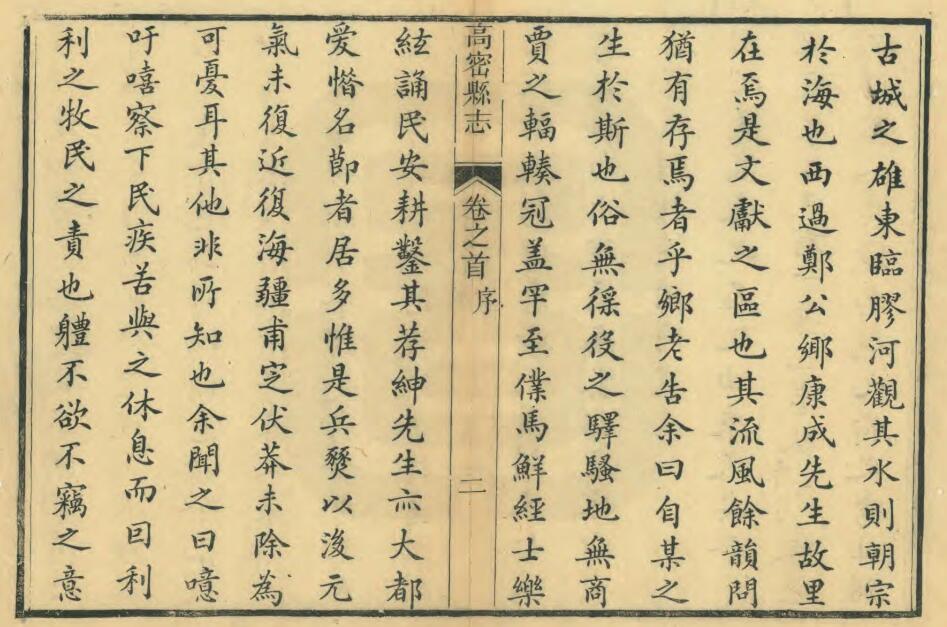 古城之雄東臨膠河觀其水則朝宗
於海也西過鄭公鄉康成先生故里
在焉是文獻之區也其流風餘韻問
猶有存焉者乎鄉老告余曰自某之
生於斯也俗無徭役之驛騷地無商
賈之輻輳冠盖罕至僕馬鮮經士樂
高密縣志
卷之首
序
二
絃誦民安耕鑿其荐紳先生亦大都
爱惜名節者居多惟是兵燹以後元
氣未復近復海疆甫定伏莽未除為
可憂耳其他非所知也余聞之曰噫
吁嘻察下民疾苦與之休息而因利
利之牧民之責也軆不欲不竊之意